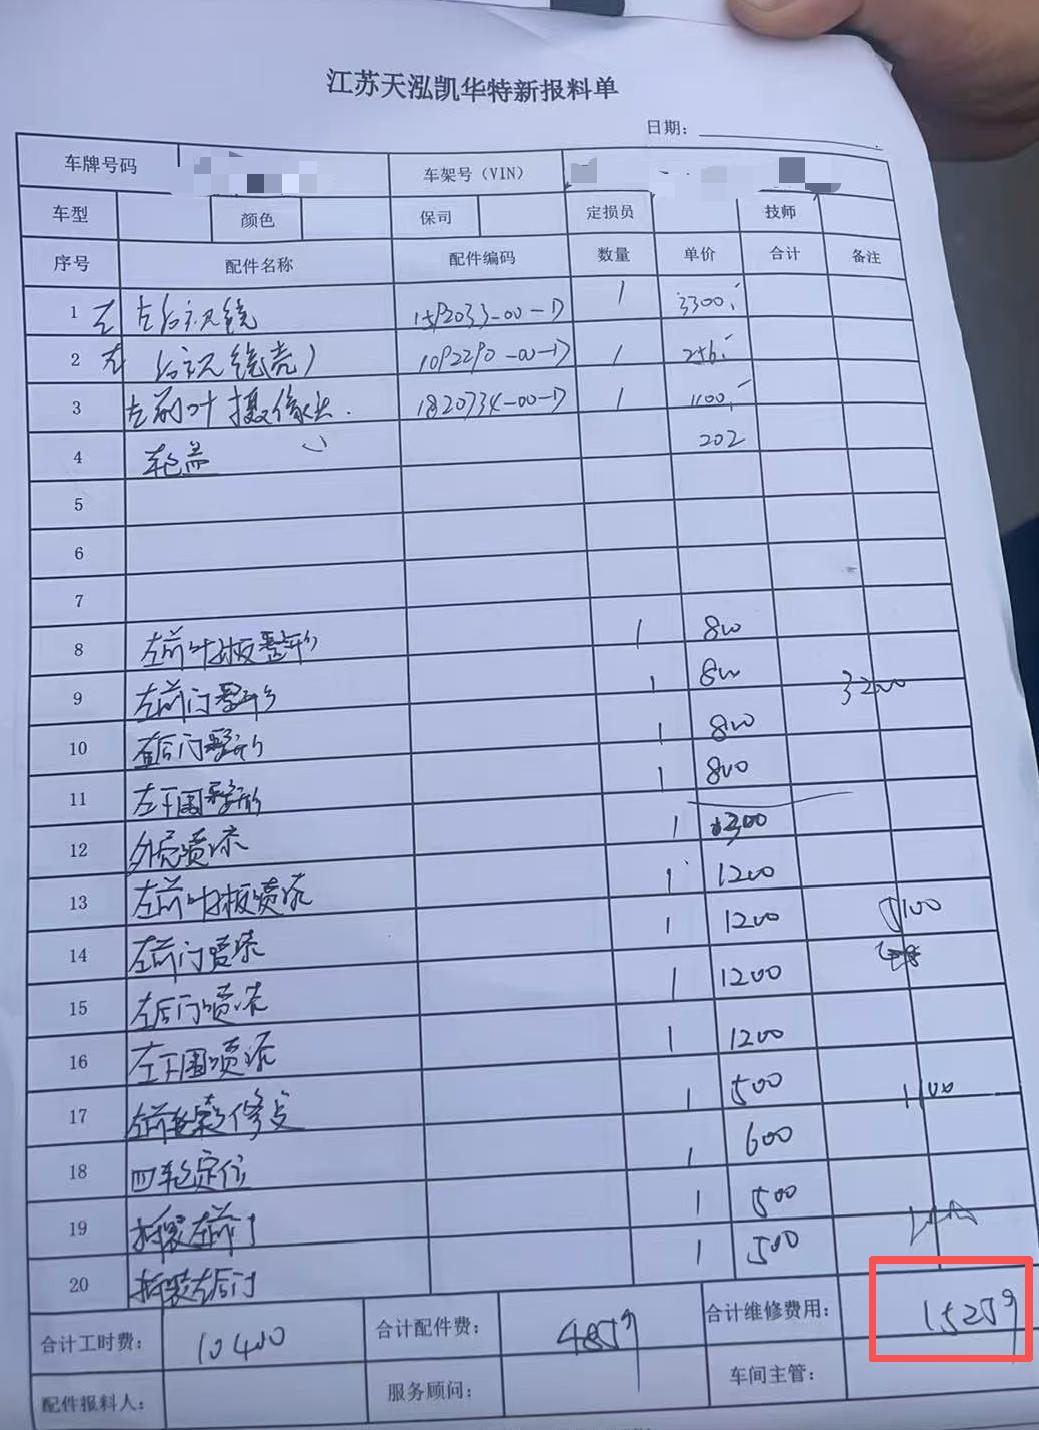 江苏天泓凯华特新报料单
日期：
车牌号码 车架号（VIN）
车型 颜色 保司 定损员 技师
序号 配件名称 配件编码 数量 单价 合计 备注
1 左 左后视镜 1 3300.-
2 左 后视镜(壳) 1092290-00-D 1 256.-
3 左前叶摄像头. 1820734-00-D 1 1100.-
4 轮盖 202
5
6
7
8 左前叶子板整形 1 800
9 左前门整形 1 800 3200
10 左后门整形 1 800
11 左下围整形 1 800
12 外壳喷漆 1 300
13 左前叶子板喷漆 1 1200
14 左前门喷漆 1 1200 5100
15 左后门喷漆 1 1200
16 左下围喷漆 1 1200
17 左前轮毂修复 1 500 1100
18 四轮定位 1 600
19 拆装左前门 1 500
20 拆装左后门 1 500
合计工时费： 10400 合计配件费： 4859 合计维修费用： 15259
配件报料人： 服务顾问： 车间主管：